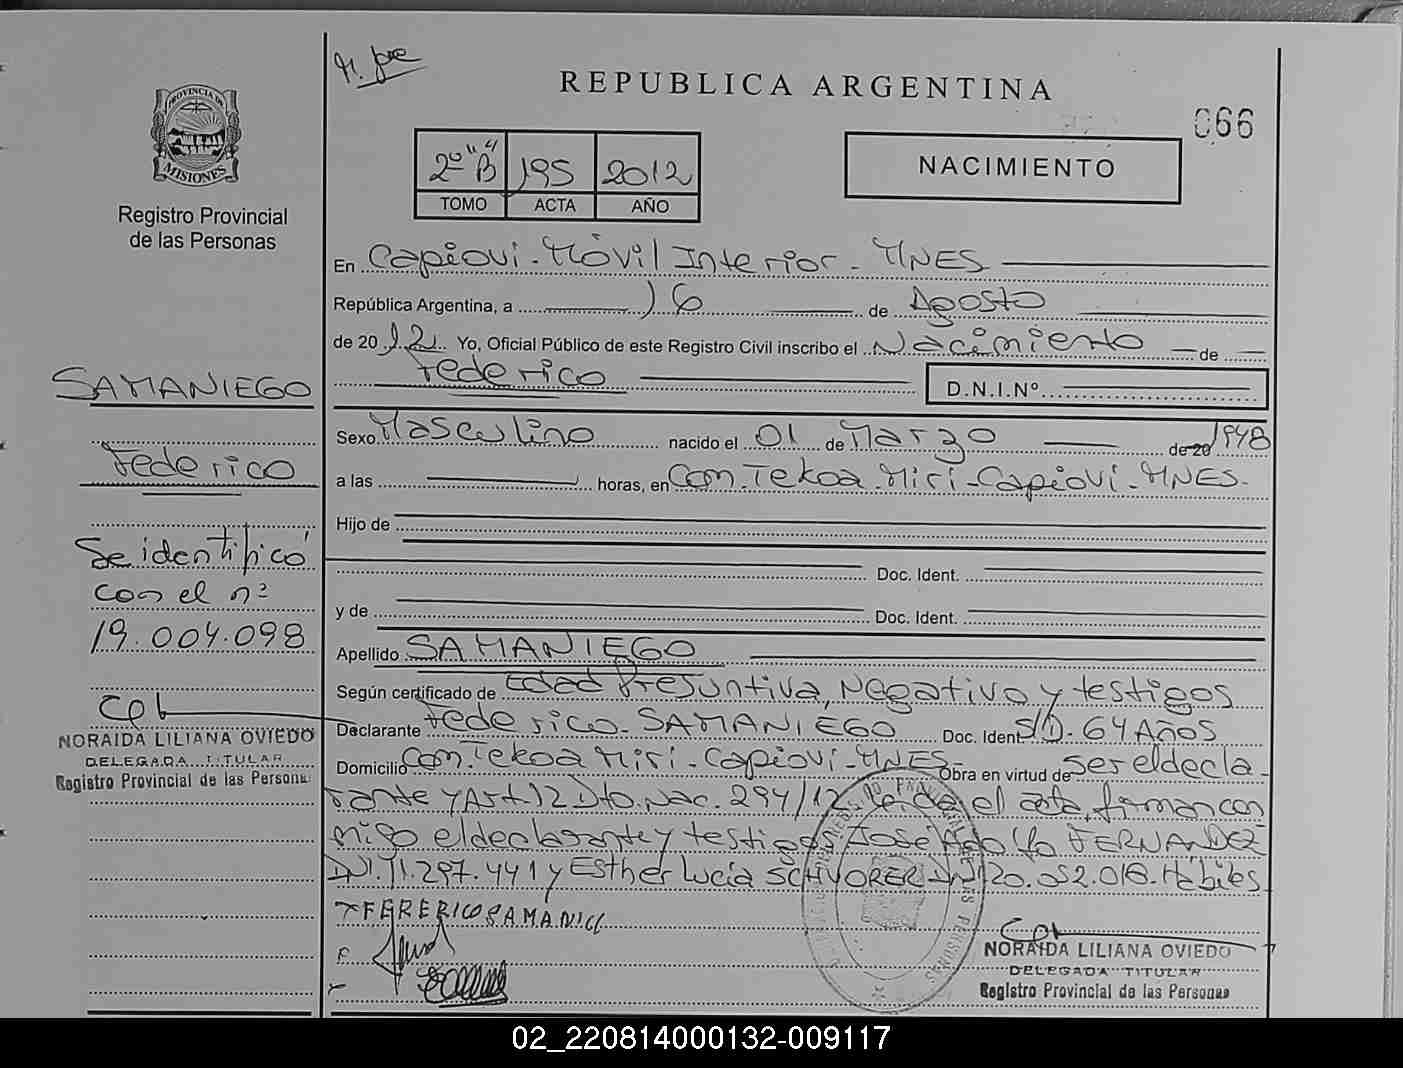 M. Jose
REPUBLICA ARGENTINA
066
PROVINCIA DE
MISIONES
Registro Provincial
de las Personas
2º "B" 195 2012
TOMO ACTA AÑO
NACIMIENTO
En Capiovi - Móvil Interior - MNES
República Argentina, a 16 de Agosto
de 2012. Yo, Oficial Público de este Registro Civil inscribo el Nacimiento de
Federico
D.N.I.Nº
Sexo Masculino nacido el 01 de Marzo de 20 1948
a las horas, en Com. Tekoa Miri - Capiovi - MNES -
Hijo de
Doc. Ident.
y de Doc. Ident.
Apellido SAMANIEGO
Según certificado de Edad Presuntiva, Negativo y testigos
Declarante Federico - SAMANIEGO Doc. Ident S/D - 64 Años
Domicilio Com. Tekoa Miri - Capiovi - MNES - Obra en virtud de ser el decla-
rante y Art. 12 Dto. Nac. 294/12 Leída el acta, firman con
migo el declarante y testigos José Adolfo FERNANDEZ
DNI. 11.297.441 y Esther Lucía SCHVORER DNI 20.052.018 - Hábiles
x FERERICO SAMANIEG
NORAIDA LILIANA OVIEDO
DELEGADA TITULAR
Registro Provincial de las Personas
SAMANIEGO
Federico
Se identificó
con el nº
19.004.098
NORAIDA LILIANA OVIEDO
DELEGADA TITULAR
Registro Provincial de las Persona
02_220814000132-009117